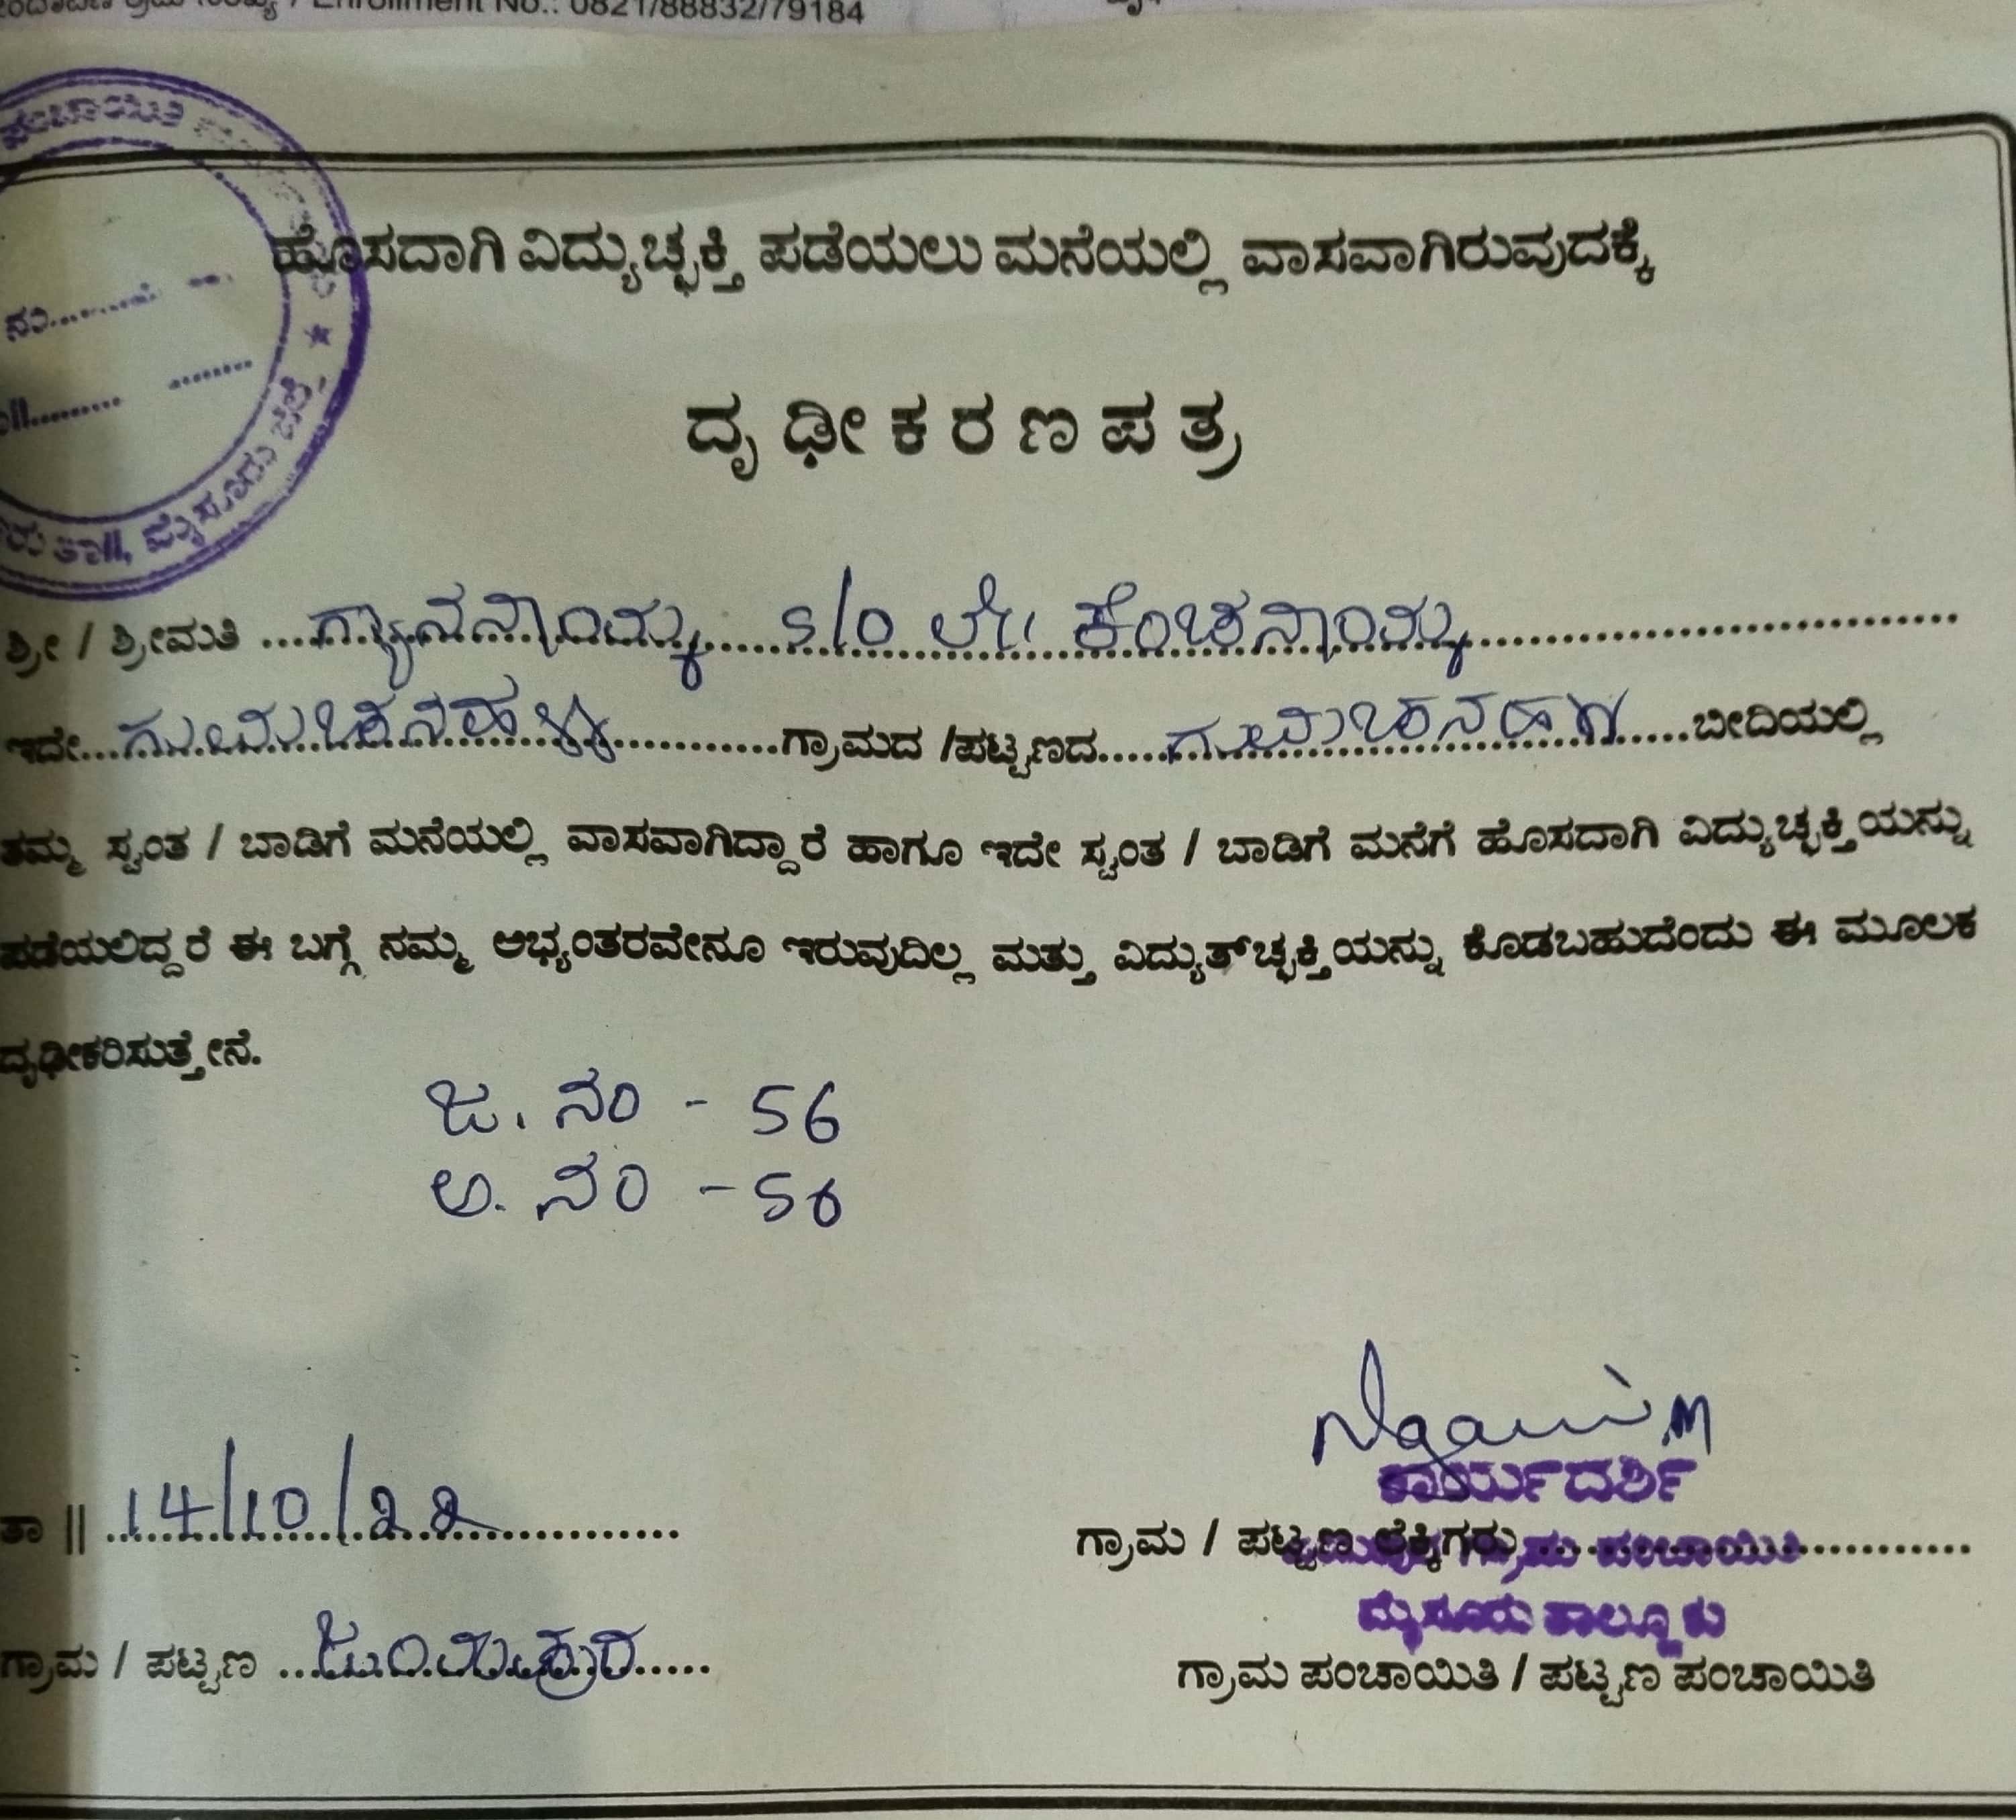 / Enrollment No.: 0821/88832/79184
ಪಂಚಾಯಿತಿ
ನಂ..........
ತಾ||, ಮೈಸೂರು ಜಿಲ್ಲೆ.
ಹೊಸದಾಗಿ ವಿದ್ಯುಚ್ಛಕ್ತಿ ಪಡೆಯಲು ಮನೆಯಲ್ಲಿ ವಾಸವಾಗಿರುವುದಕ್ಕೆ
ದೃಢೀಕರಣಪತ್ರ
ಶ್ರೀ / ಶ್ರೀಮತಿ ....ಗ್ಯಾನನಾಯ್ಕ..... S/O ಲೇ|| ಕೆಂಚನಾಯ್ಕ..............................
ಇದೇ...ಗುಮಚನಹಳ್ಳಿ............ಗ್ರಾಮದ /ಪಟ್ಟಣದ.....ಗುಮಚನಹಳ್ಳಿ.....ಬೀದಿಯಲ್ಲಿ
ತಮ್ಮ ಸ್ವಂತ / ಬಾಡಿಗೆ ಮನೆಯಲ್ಲಿ ವಾಸವಾಗಿದ್ದಾರೆ ಹಾಗೂ ಇದೇ ಸ್ವಂತ / ಬಾಡಿಗೆ ಮನೆಗೆ ಹೊಸದಾಗಿ ವಿದ್ಯುಚ್ಛಕ್ತಿಯನ್ನು
ಪಡೆಯಲಿದ್ದರೆ ಈ ಬಗ್ಗೆ ನಮ್ಮ ಅಭ್ಯಂತರವೇನೂ ಇರುವುದಿಲ್ಲ ಮತ್ತು ವಿದ್ಯುತ್‌ಚ್ಛಕ್ತಿಯನ್ನು ಕೊಡಬಹುದೆಂದು ಈ ಮೂಲಕ
ದೃಢೀಕರಿಸುತ್ತೇನೆ.
ಜ. ನಂ - 56
ಅ. ನಂ - 56
ಕಾರ್ಯದರ್ಶಿ
ತಾ || 14/10/22....................
ಗ್ರಾಮ / ಪಟ್ಟಣ ಲೆಕ್ಕಿಗರು..............................
ಗ್ರಾಮ ಪಂಚಾಯಿತಿ
ಮೈಸೂರು ತಾಲ್ಲೂಕು
ಗ್ರಾಮ / ಪಟ್ಟಣ ...ಜಯಪುರ.....
ಗ್ರಾಮ ಪಂಚಾಯಿತಿ / ಪಟ್ಟಣ ಪಂಚಾಯಿತಿ